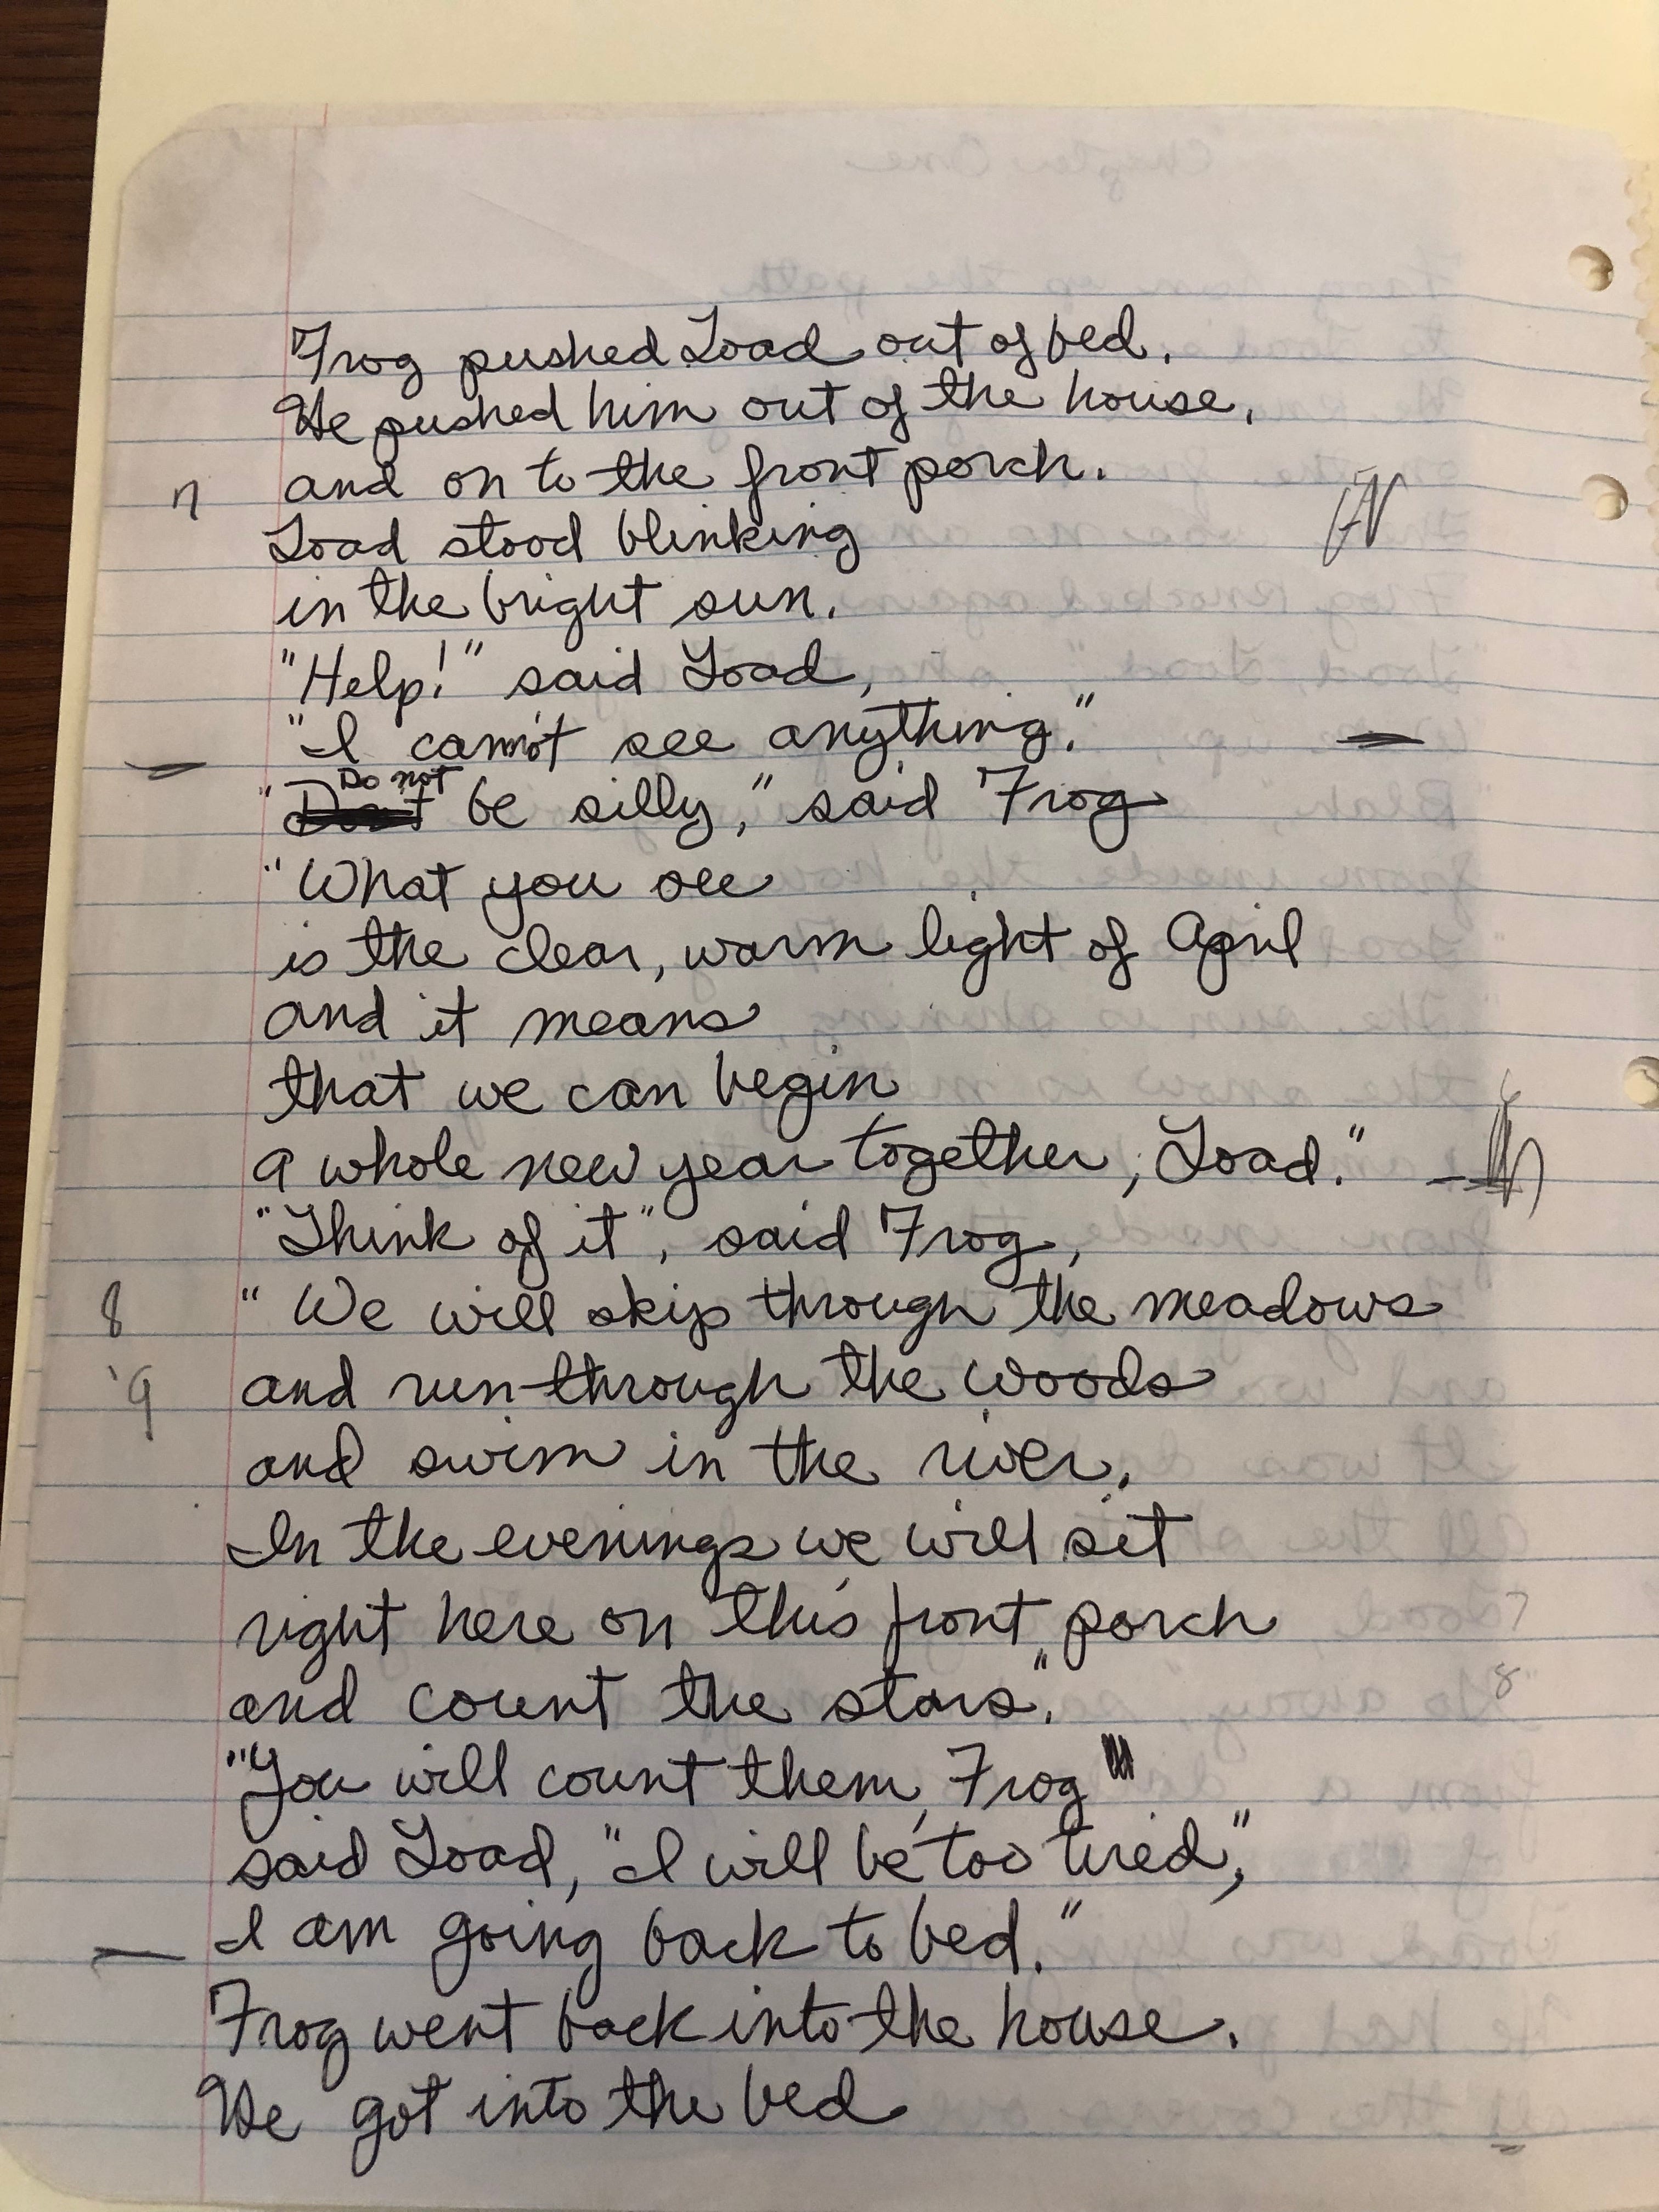 Frog pushed Toad out of bed.
He pushed him out of the house,
7 and on to the front porch.
Toad stood blinking
in the bright sun.
"Help!" said Toad,
"I cannot see anything."
Do not
"Don't be silly," said Frog
"What you see
is the clear, warm light of April
and it means
that we can begin
a whole new year together, Toad."
"Think of it", said Frog,
8 "We will skip through the meadows
9 and run through the woods
and swim in the river.
In the evenings we will sit
right here on this front porch
and count the stars."
"You will count them, Frog"
said Toad, "I will be too tired,"
I am going back to bed."
Frog went back into the house.
He got into the bed